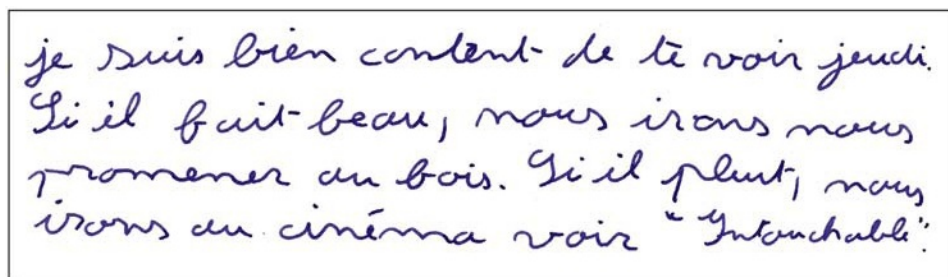 je suis bien content de te voir jeudi.
Si il fait beau, nous irons nous
promener au bois. Si il pleut, nous
irons au cinéma voir "Intouchable".